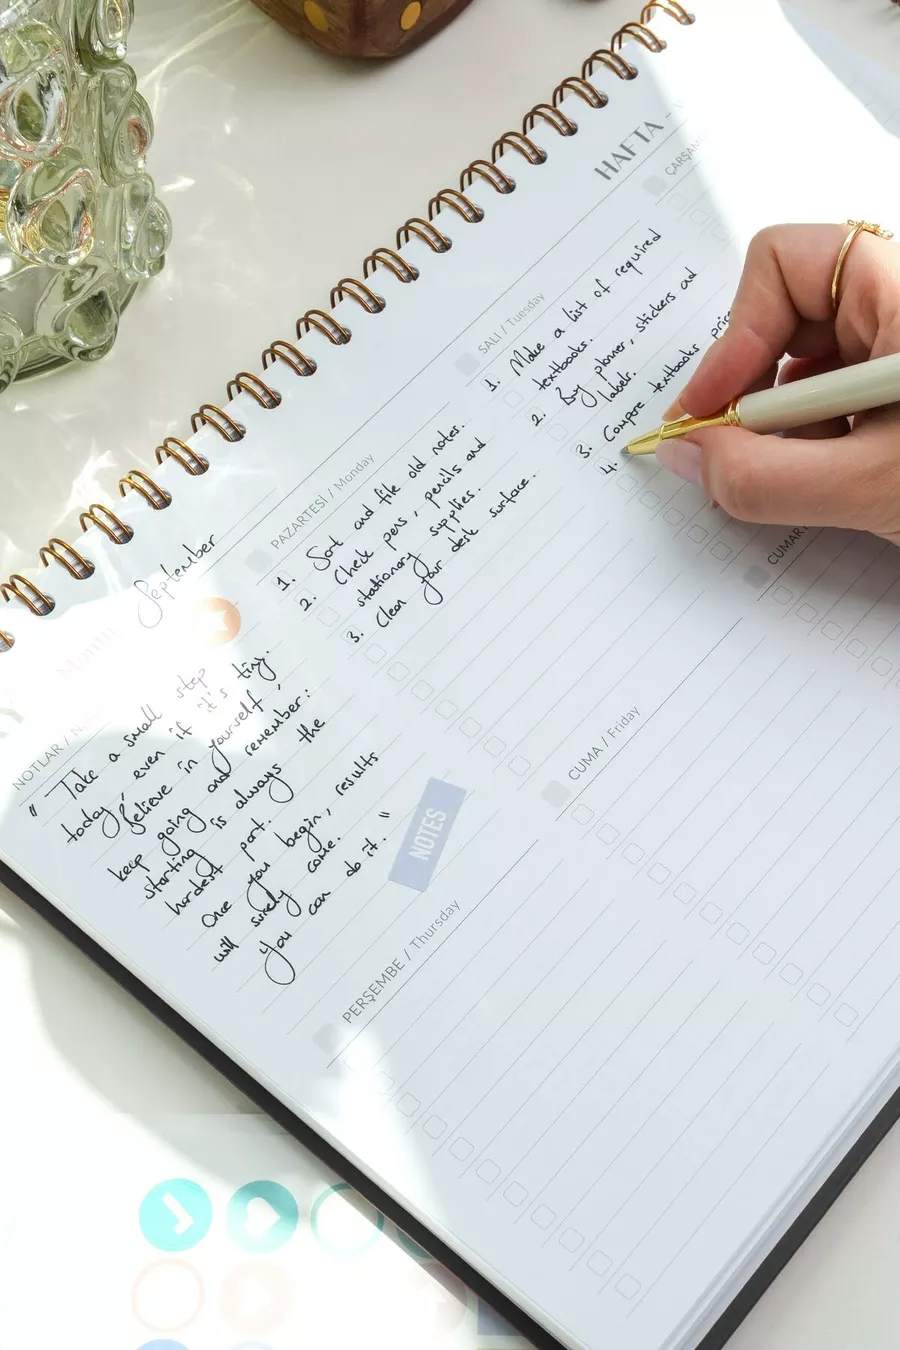 HAFTA -
Month
September
NOTLAR /
" Take a small step
today, even if it's tiny.
Believe in yourself,
keep going and remember:
starting is always the
hardest part.
Once you begin, results
will surely come.
you can do it. "
NOTES
PAZARTESİ / Monday
1. Sort and file old notes.
2. Check pens, pencils and
stationary supplies.
3. Clean your desk surface.
SALI / Tuesday
1. Make a list of required
textbooks.
2. Buy planner, stickers and
labels.
3. Compare textbooks
4.
PERŞEMBE / Thursday
CUMA / Friday